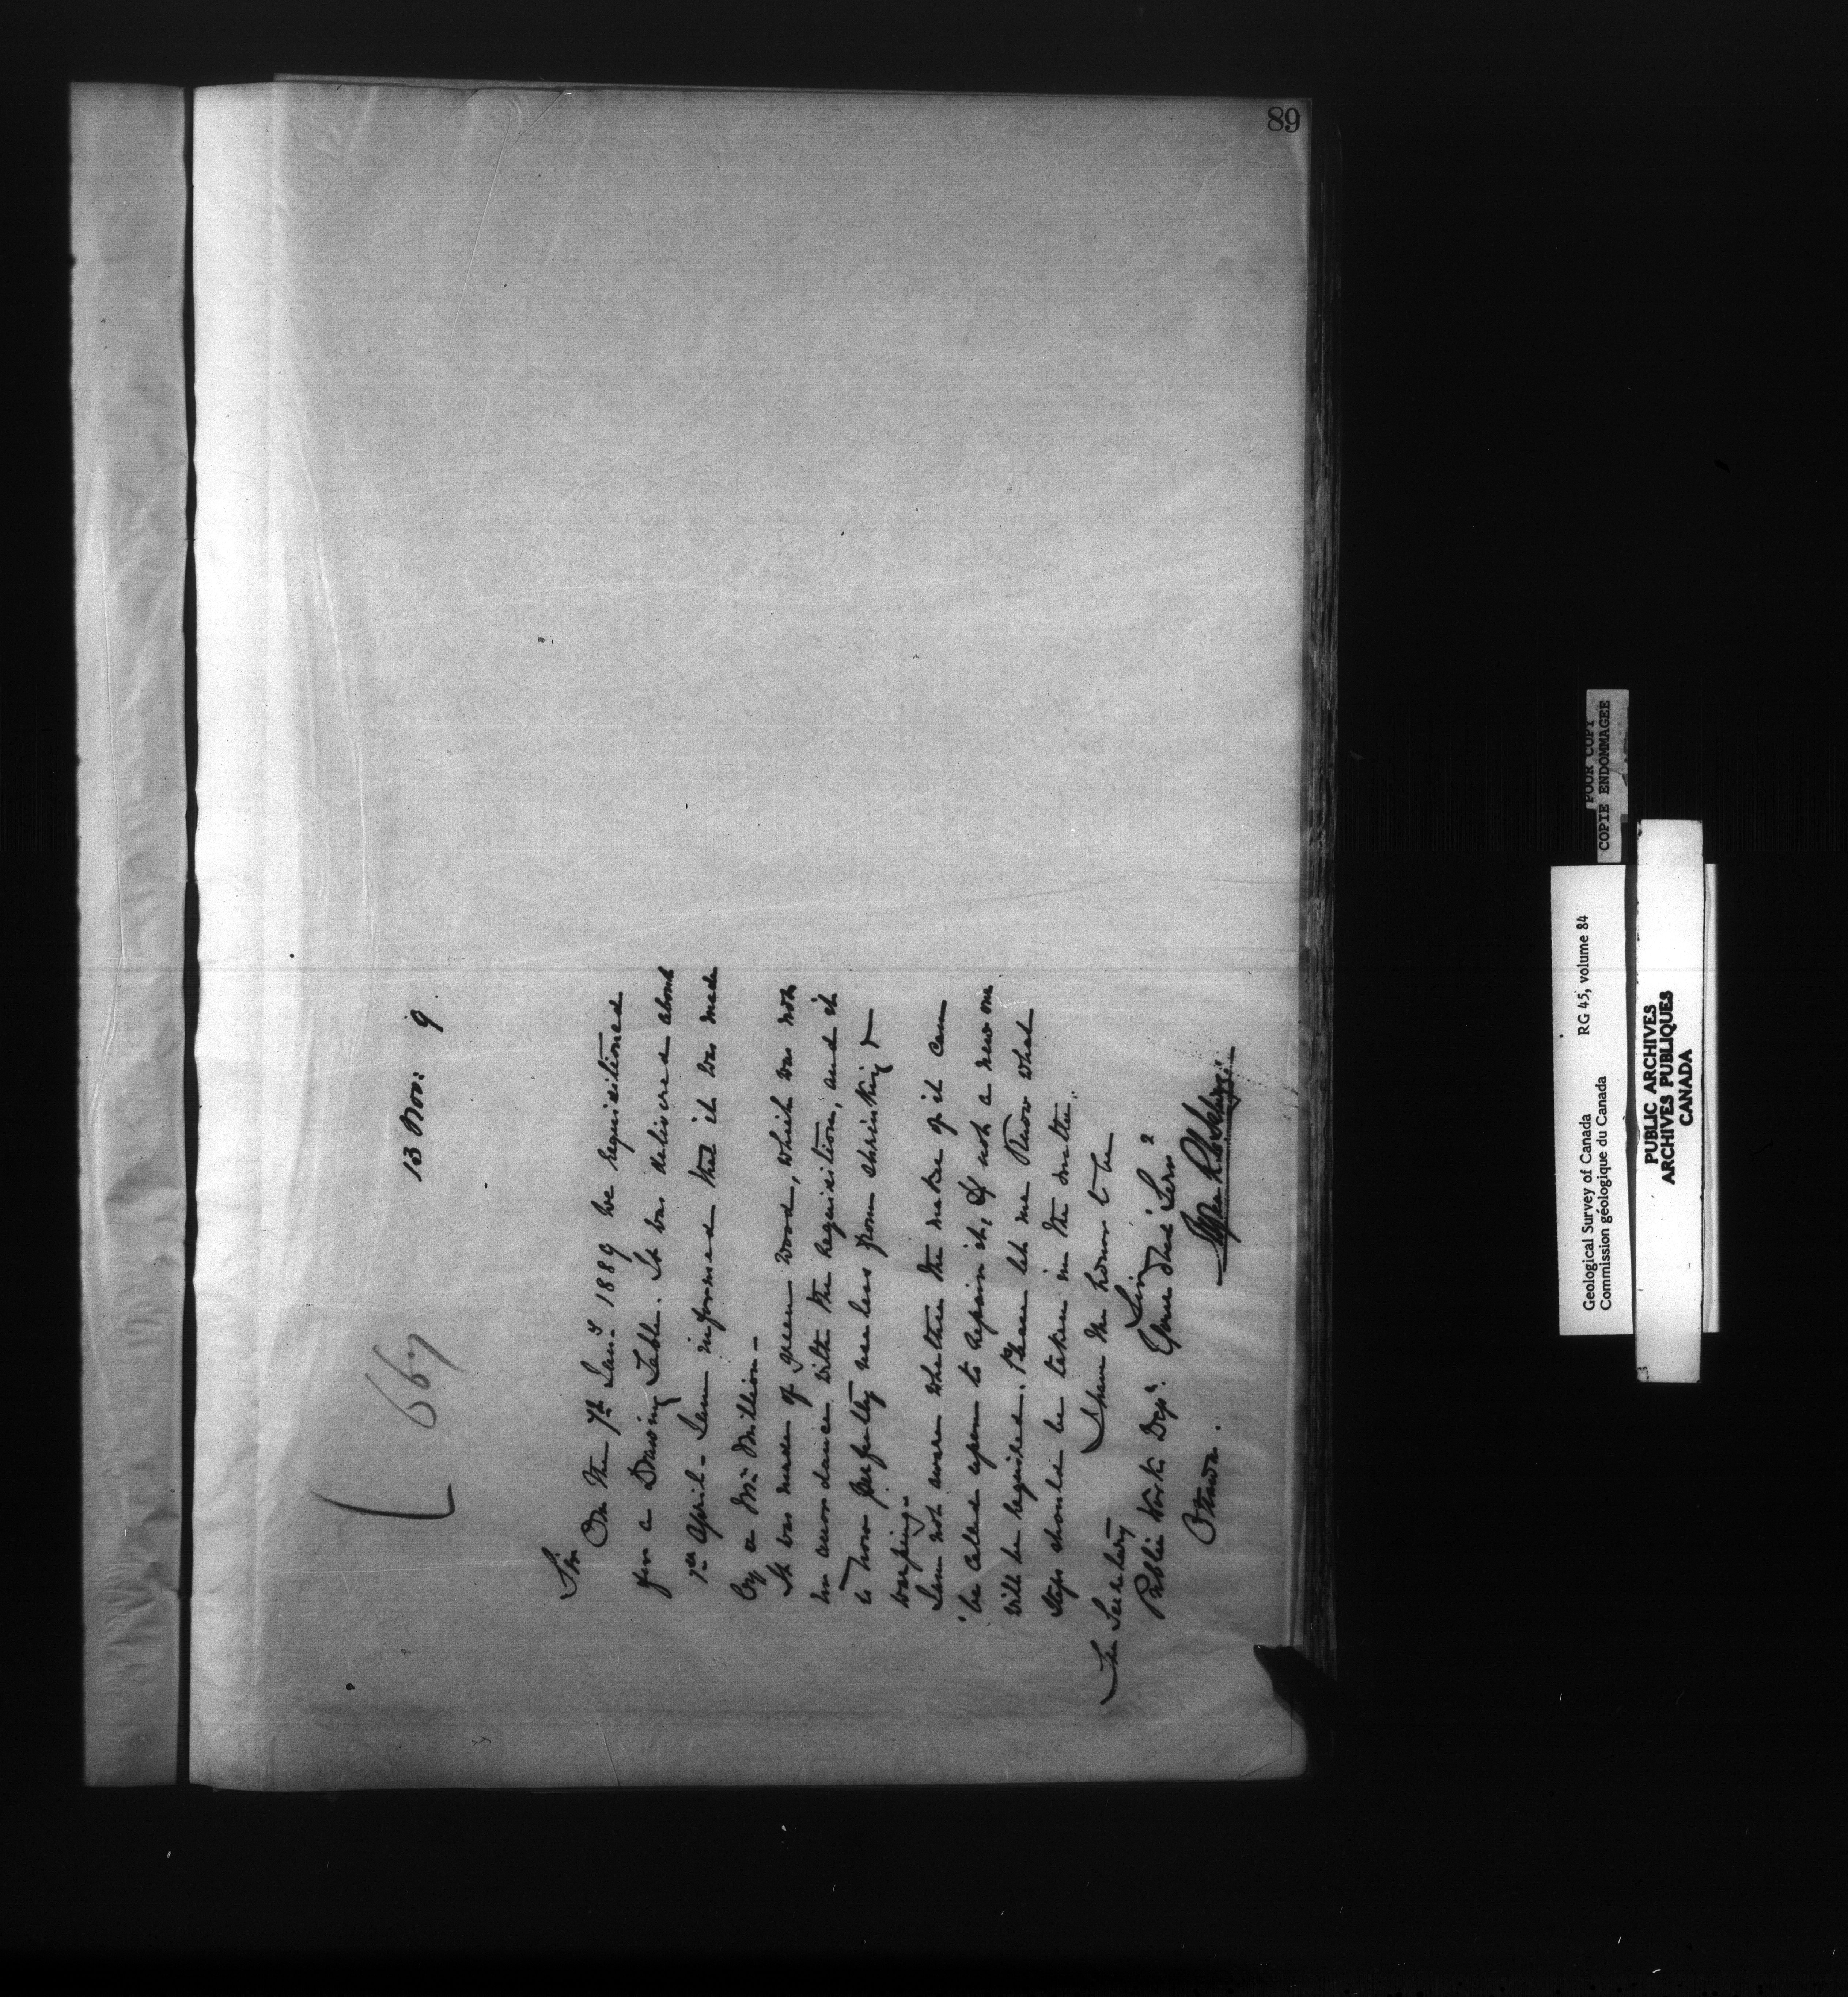 89
667
13 Nov: 9
Sir
On the 7th Jany 1889 we requisitioned
for a Drawing Table. It was delivered about
1st April. I am informed that it was made
by a Mr. Million.
It was made of green wood, which was not
in accordance with the requisition, and it
is now perfectly useless from shrinking &
warping.
I am not aware whether the maker of it can
be called upon to repair it, If not a new one
will be required. Please let me know what
steps should be taken in the matter.
I have the honor to be
Sir
Your obed Serv
The Secretary
Public Works Dept.
Ottawa.
Geological Survey of Canada RG 45, volume 84
Commission géologique du Canada
POOR COPY
COPIE ENDOMMAGEE
PUBLIC ARCHIVES
ARCHIVES PUBLIQUES
CANADA